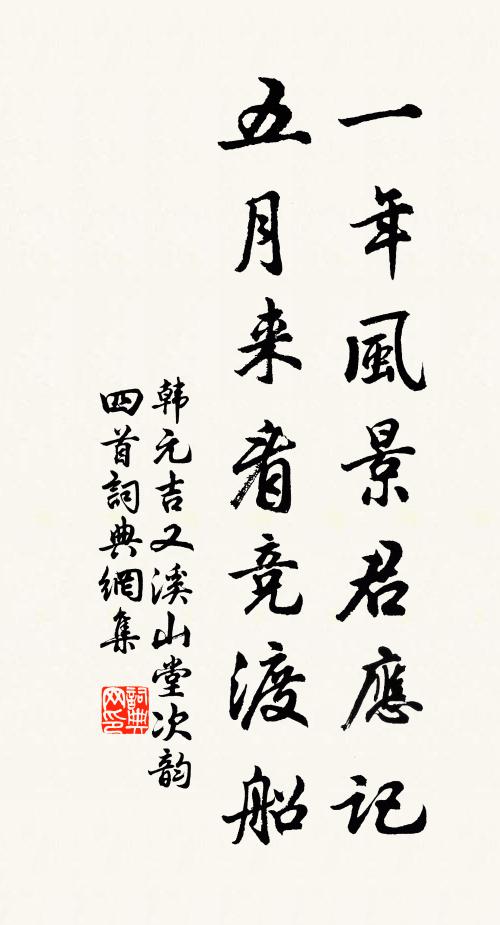 一年風景君應記
五月来看竞渡船
韩元吉又溪山堂次韵
四首詞典網集
詞典
网印